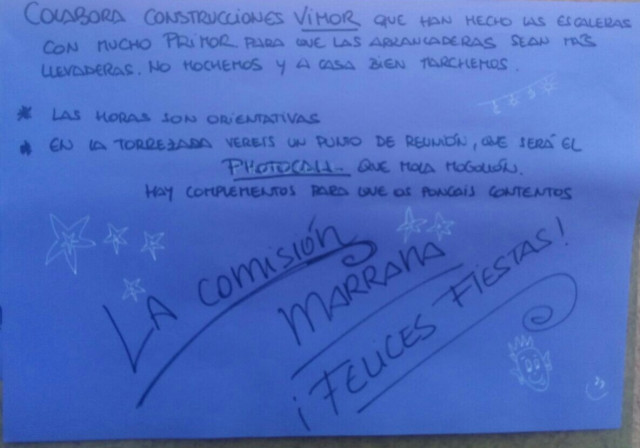 COLABORA CONSTRUCCIONES VIMOR QUE HAN HECHO LAS ESCALERAS
CON MUCHO PRIMOR PARA QUE LAS ARRANCADERAS SEAN MAS
LLEVADERAS. NO NOCHEMOS Y A CASA BIEN MARCHEMOS.
* LAS HORAS SON ORIENTATIVAS
* EN LA TORREZADA VEREIS UN PUNTO DE REUNIÓN, QUE SERÁ EL
PHOTOCALL QUE MOLA MOGOLLÓN.
HAY COMPLEMENTOS PARA QUE OS PONGAIS CONTENTOS
LA COMISIÓN
MARRANA
¡FELICES FIESTAS!